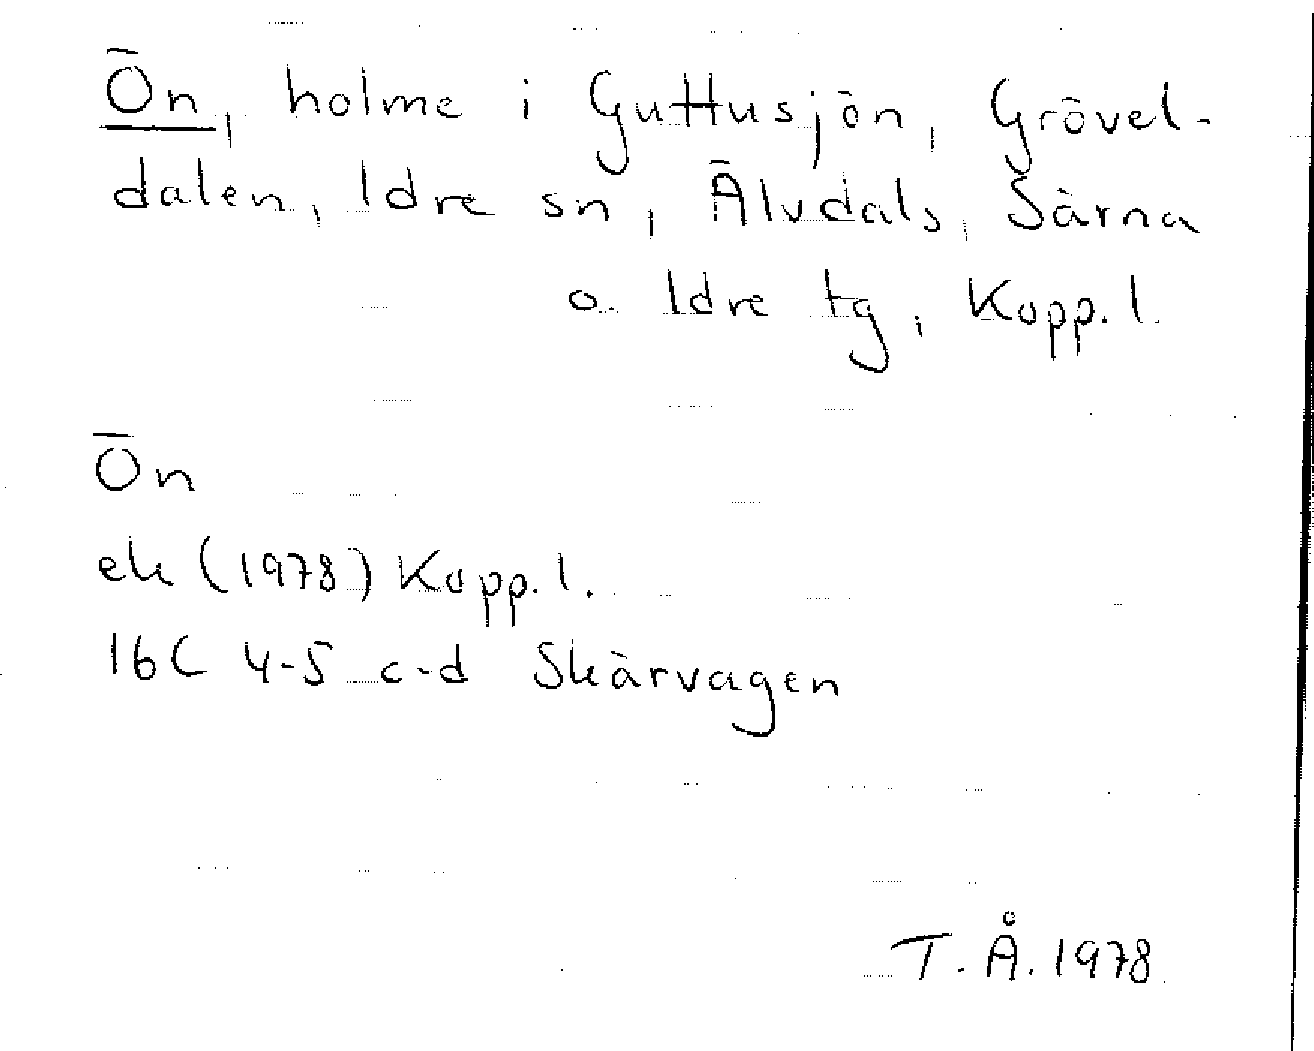 Ön, holme i Guttusjön, Grövel-
dalen, Idre sn, Älvdals, Särna
o. Idre tg, Kopp. l.
Ön
ek (1978) Kopp. l.
16C 4-5 c-d Skärvagen
T. Å. 1978